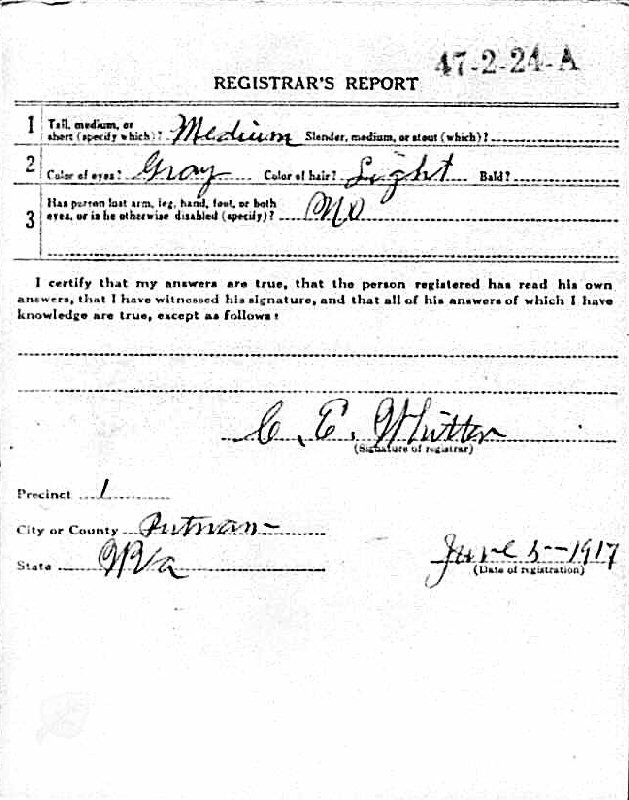 47-2-24-A
REGISTRAR'S REPORT
1 Tall, medium, or
short (specify which)? Medium Slender, medium, or stout (which)?
2 Color of eyes? Gray Color of hair? Light Bald?
3 Has person lost arm, leg, hand, foot, or both
eyes, or is he otherwise disabled (specify)? No
I certify that my answers are true, that the person registered has read his own
answers, that I have witnessed his signature, and that all of his answers of which I have
knowledge are true, except as follows:
C. E. Whitten
(Signature of registrar)
Precinct 1
City or County Putnam
State WVa
June 5-1917
(Date of registration)